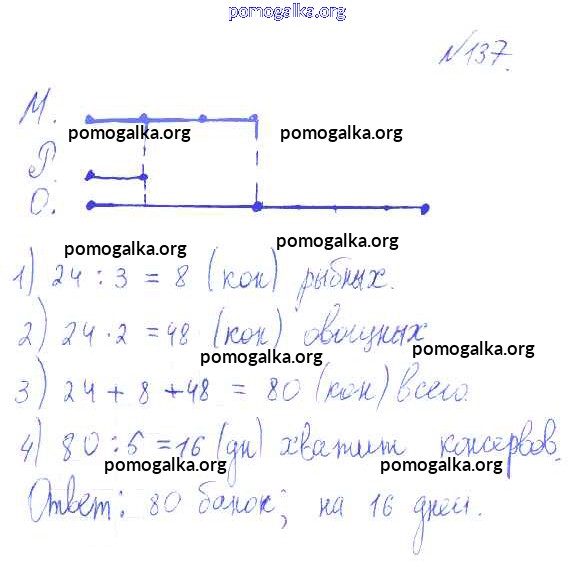 pomogalka.org
№137.
М.
pomogalka.org pomogalka.org
Р.
О.
pomogalka.org pomogalka.org
1) 24 : 3 = 8 (кон) рыбных.
2) 24 · 2 = 48 (кон) овощных
pomogalka.org pomogalka.org
3) 24 + 8 + 48 = 80 (кон) всего.
4) 80 : 5 = 16 (дн) хватит консервов.
pomogalka.org pomogalka.org
Ответ: 80 банок; на 16 дней.